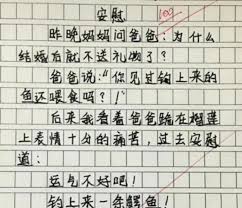 安慰
100
昨晚妈妈问爸爸：为什么
结婚后就不送礼物了？
爸爸说："你见过钓上来的
鱼还喂食吗？！"
后来我看着爸爸跪在榴莲
上表情十分的痛苦，过去安慰
道：
运气不好吧！
钓上来一条鳄鱼！